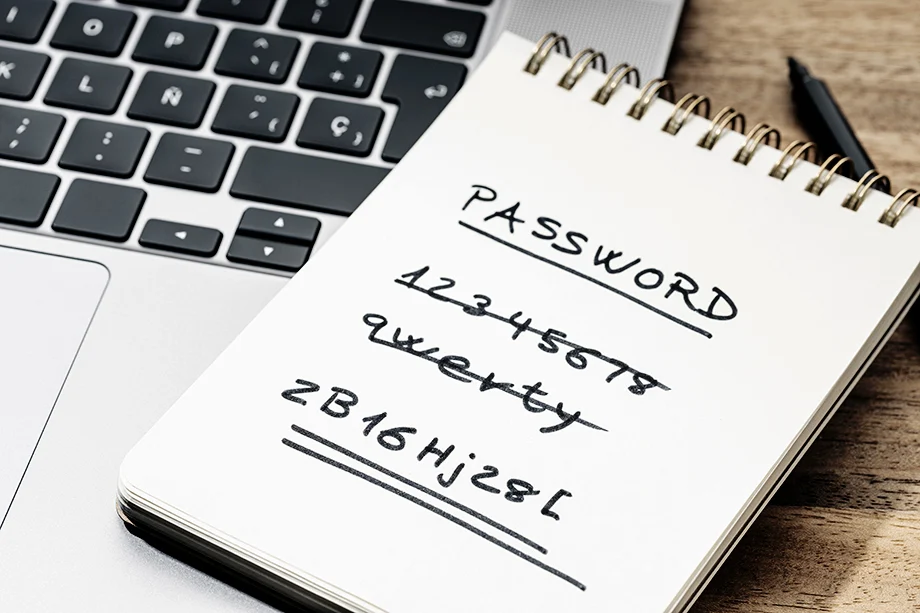 O P
K L Ñ Ç
PASSWORD
12345678
qwerty
2B16Hj28[